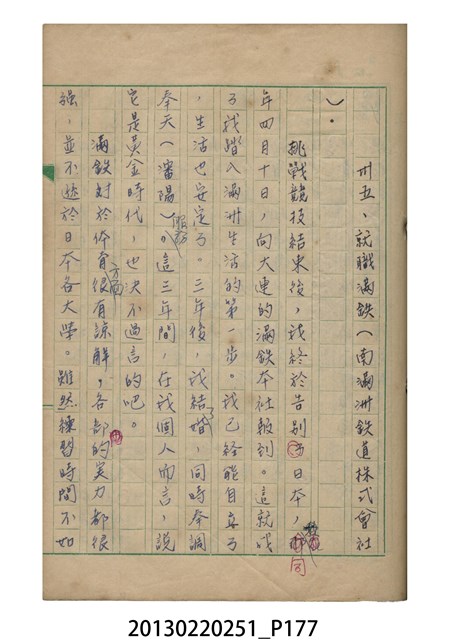 卅五、就職滿鉄（南滿洲鉄道株式會社
）．
挑戰競技結束後，我終於告别了日本，
年四月十日，向大連的滿鉄本社報到。這就成
了我踏入滿洲生活的第一步。我已経能自立了
，生活也安定了。三年後，我結了婚，同時奉調
奉天（瀋陽）服務。這三年間，在我個人而言，說
它是黃金時代，也決不過言的吧。
滿鉄对於体育方面很有諒解，各部的实力都很
强，並不遜於日本各大學。雖然練習時間不如
20130220251_P177